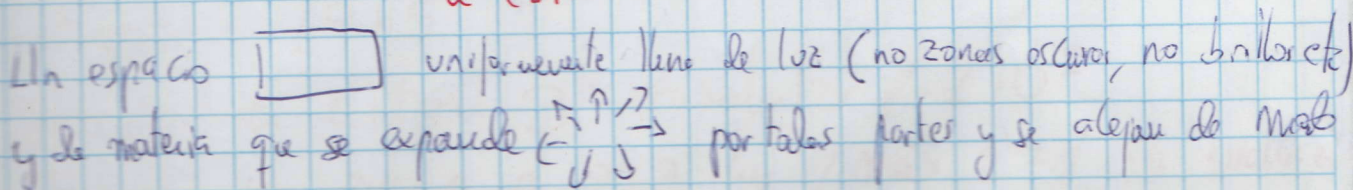 Un espacio uniformemente lleno de luz (no zonas oscuras, no brillos etc)
y de materia que se expande por todas partes y se alejan de modo